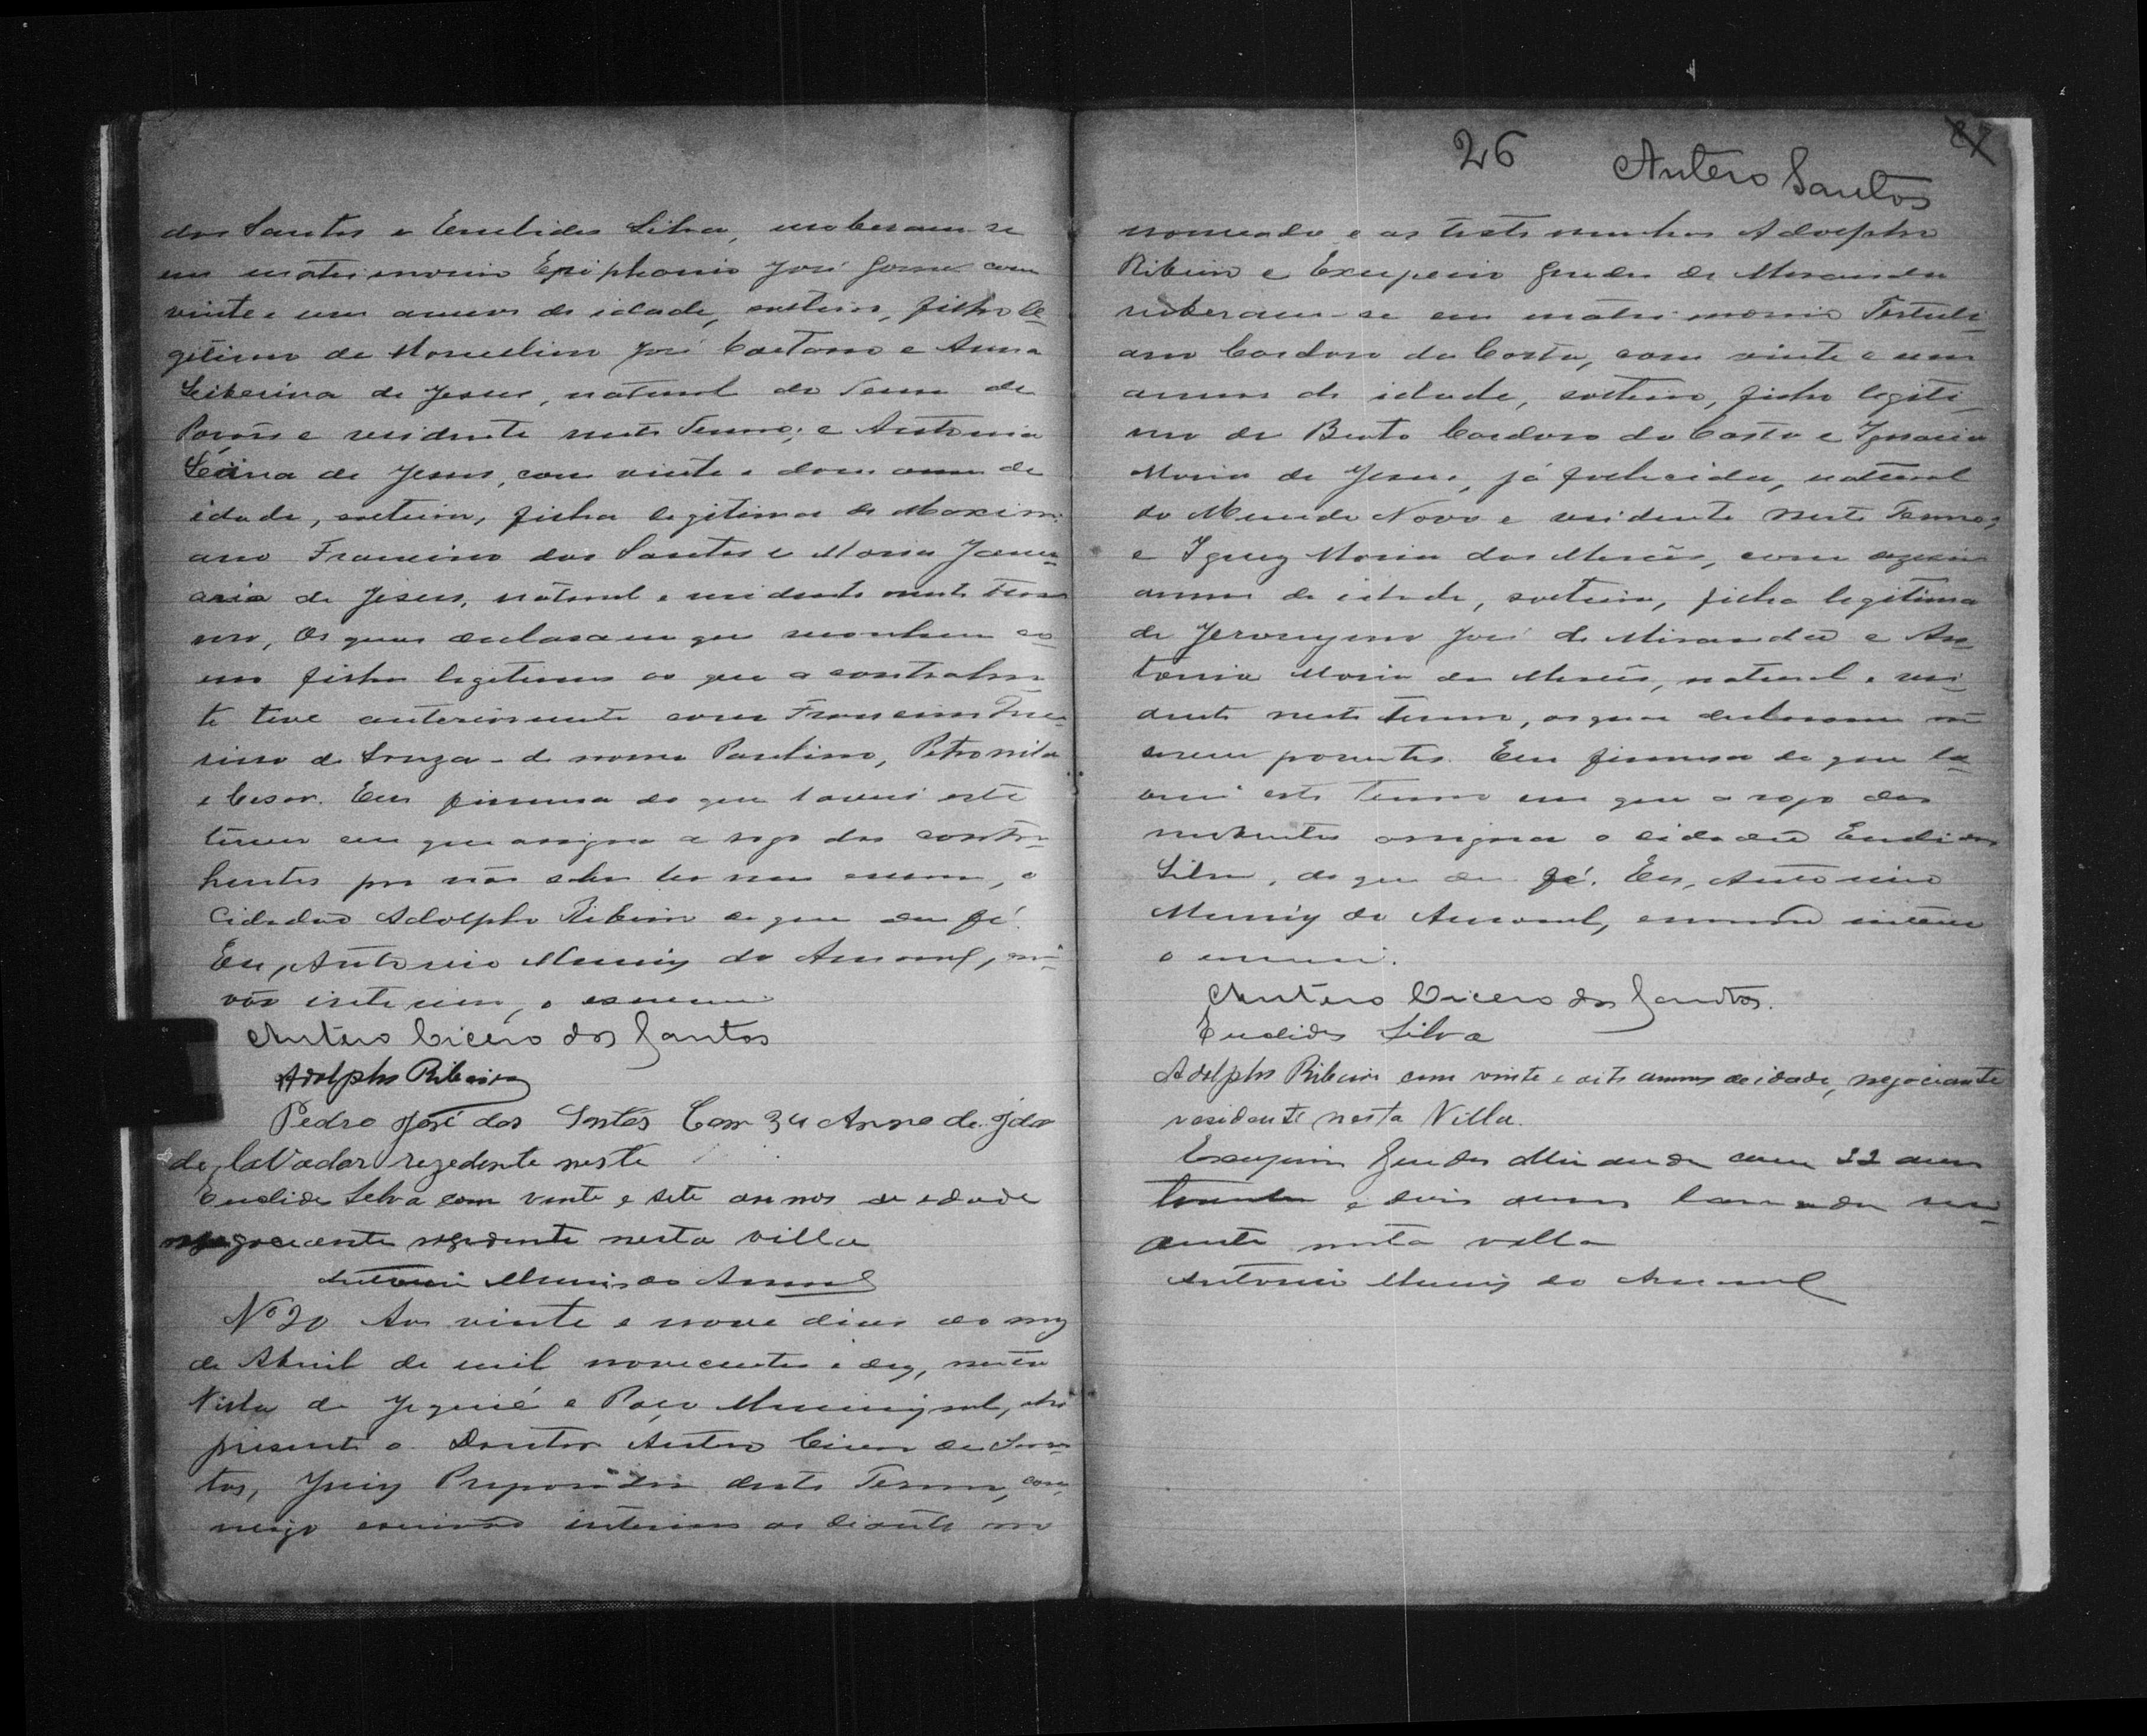 dos Santos e Euclides Silva, receberam-se
em matrimonio Epiphanio José Gomes com
vinte e um annos de idade, solteiro, filho le-
gitimo de Marcelino José Caetano e Anna
Seiberina de Jesus, natural do Termo de
e residente neste Termo; e Antonia
de Jesus, com vinte e dous annos de
idade, solteira, filha legitima de Maximi-
ano Francisco dos Santos e Maria Janu-
aria de Jesus, natural e residente neste Ter-
mo, Os quaes declararam que reconhecem co-
mo filhos legitimos os que a contrahen-
te teve anteriormente com Francisco
de Souza - de nome Paulino, Petronila
e Cesar. Em firmeza do que lavrei este
termo em que assigna a rogo dos contra-
hentes por não saber ler nem escrever, o
cidadão Adolpho Ribeiro do que dou fé.
Eu, Antonio Muniz do Amaral, escri-
vão interino, o escrevi
Antero Cicero dos Santos
Adolpho Ribeiro
Pedro José dos Sntos Com 34 Anno de Jda
de, laVador rezedente neste
Euclides Silva com vinte e sete annos de edade
negociante rezidente nesta villa
Antonio Muniz do Amaral
Nº 20 Aos vinte e nove dias do mez
de Abril de mil novecentos e dez, nesta
Villa de Jequié e Paço Municipal, ahi
presente o Doutor Antero Cicero dos San-
tos, Juiz Preparador deste Termo, com-
migo escrivão interino ao diante no
26 Antero Santos
nomeado e as testemunhas Adolpho
Ribeiro e Exuperio Guedes de Miranda
receberam-se em matrimonio Tertuli-
ano Cardoso da Costa, com vinte e um
annos de idade, solteiro, filho legiti-
mo de Bento Cardoso da Costa e Ignacia
Maria de Jesus, já fallecida, natural
do Mundo Novo e residente neste Termo;
e Ignez Maria das Mercês, com
annos de idade, solteira, filha legitima
de Jeronymo José de Miranda e An-
tonia Maria das Mercês, natural e resi-
dente neste termo, os quaes declararam não
serem parentes. Em firmeza do que la-
vrei este termo em que a rogo dos
nubentes assigna o cidadão Euclides
Silva, do que dou fé. Eu, Antonio
Muniz do Amaral, escrivão interino
o escrevi.
Antero Cicero dos Santos.
Euclides Silva
Adolpho Ribeiro com vinte e oito annos de idade, negociante
residente nesta Villa.
Exuperio Guedes Miranda com 32 annos
trenta e dois annos lavrador resi-
dente nesta villa
Antonio Muniz do Amaral